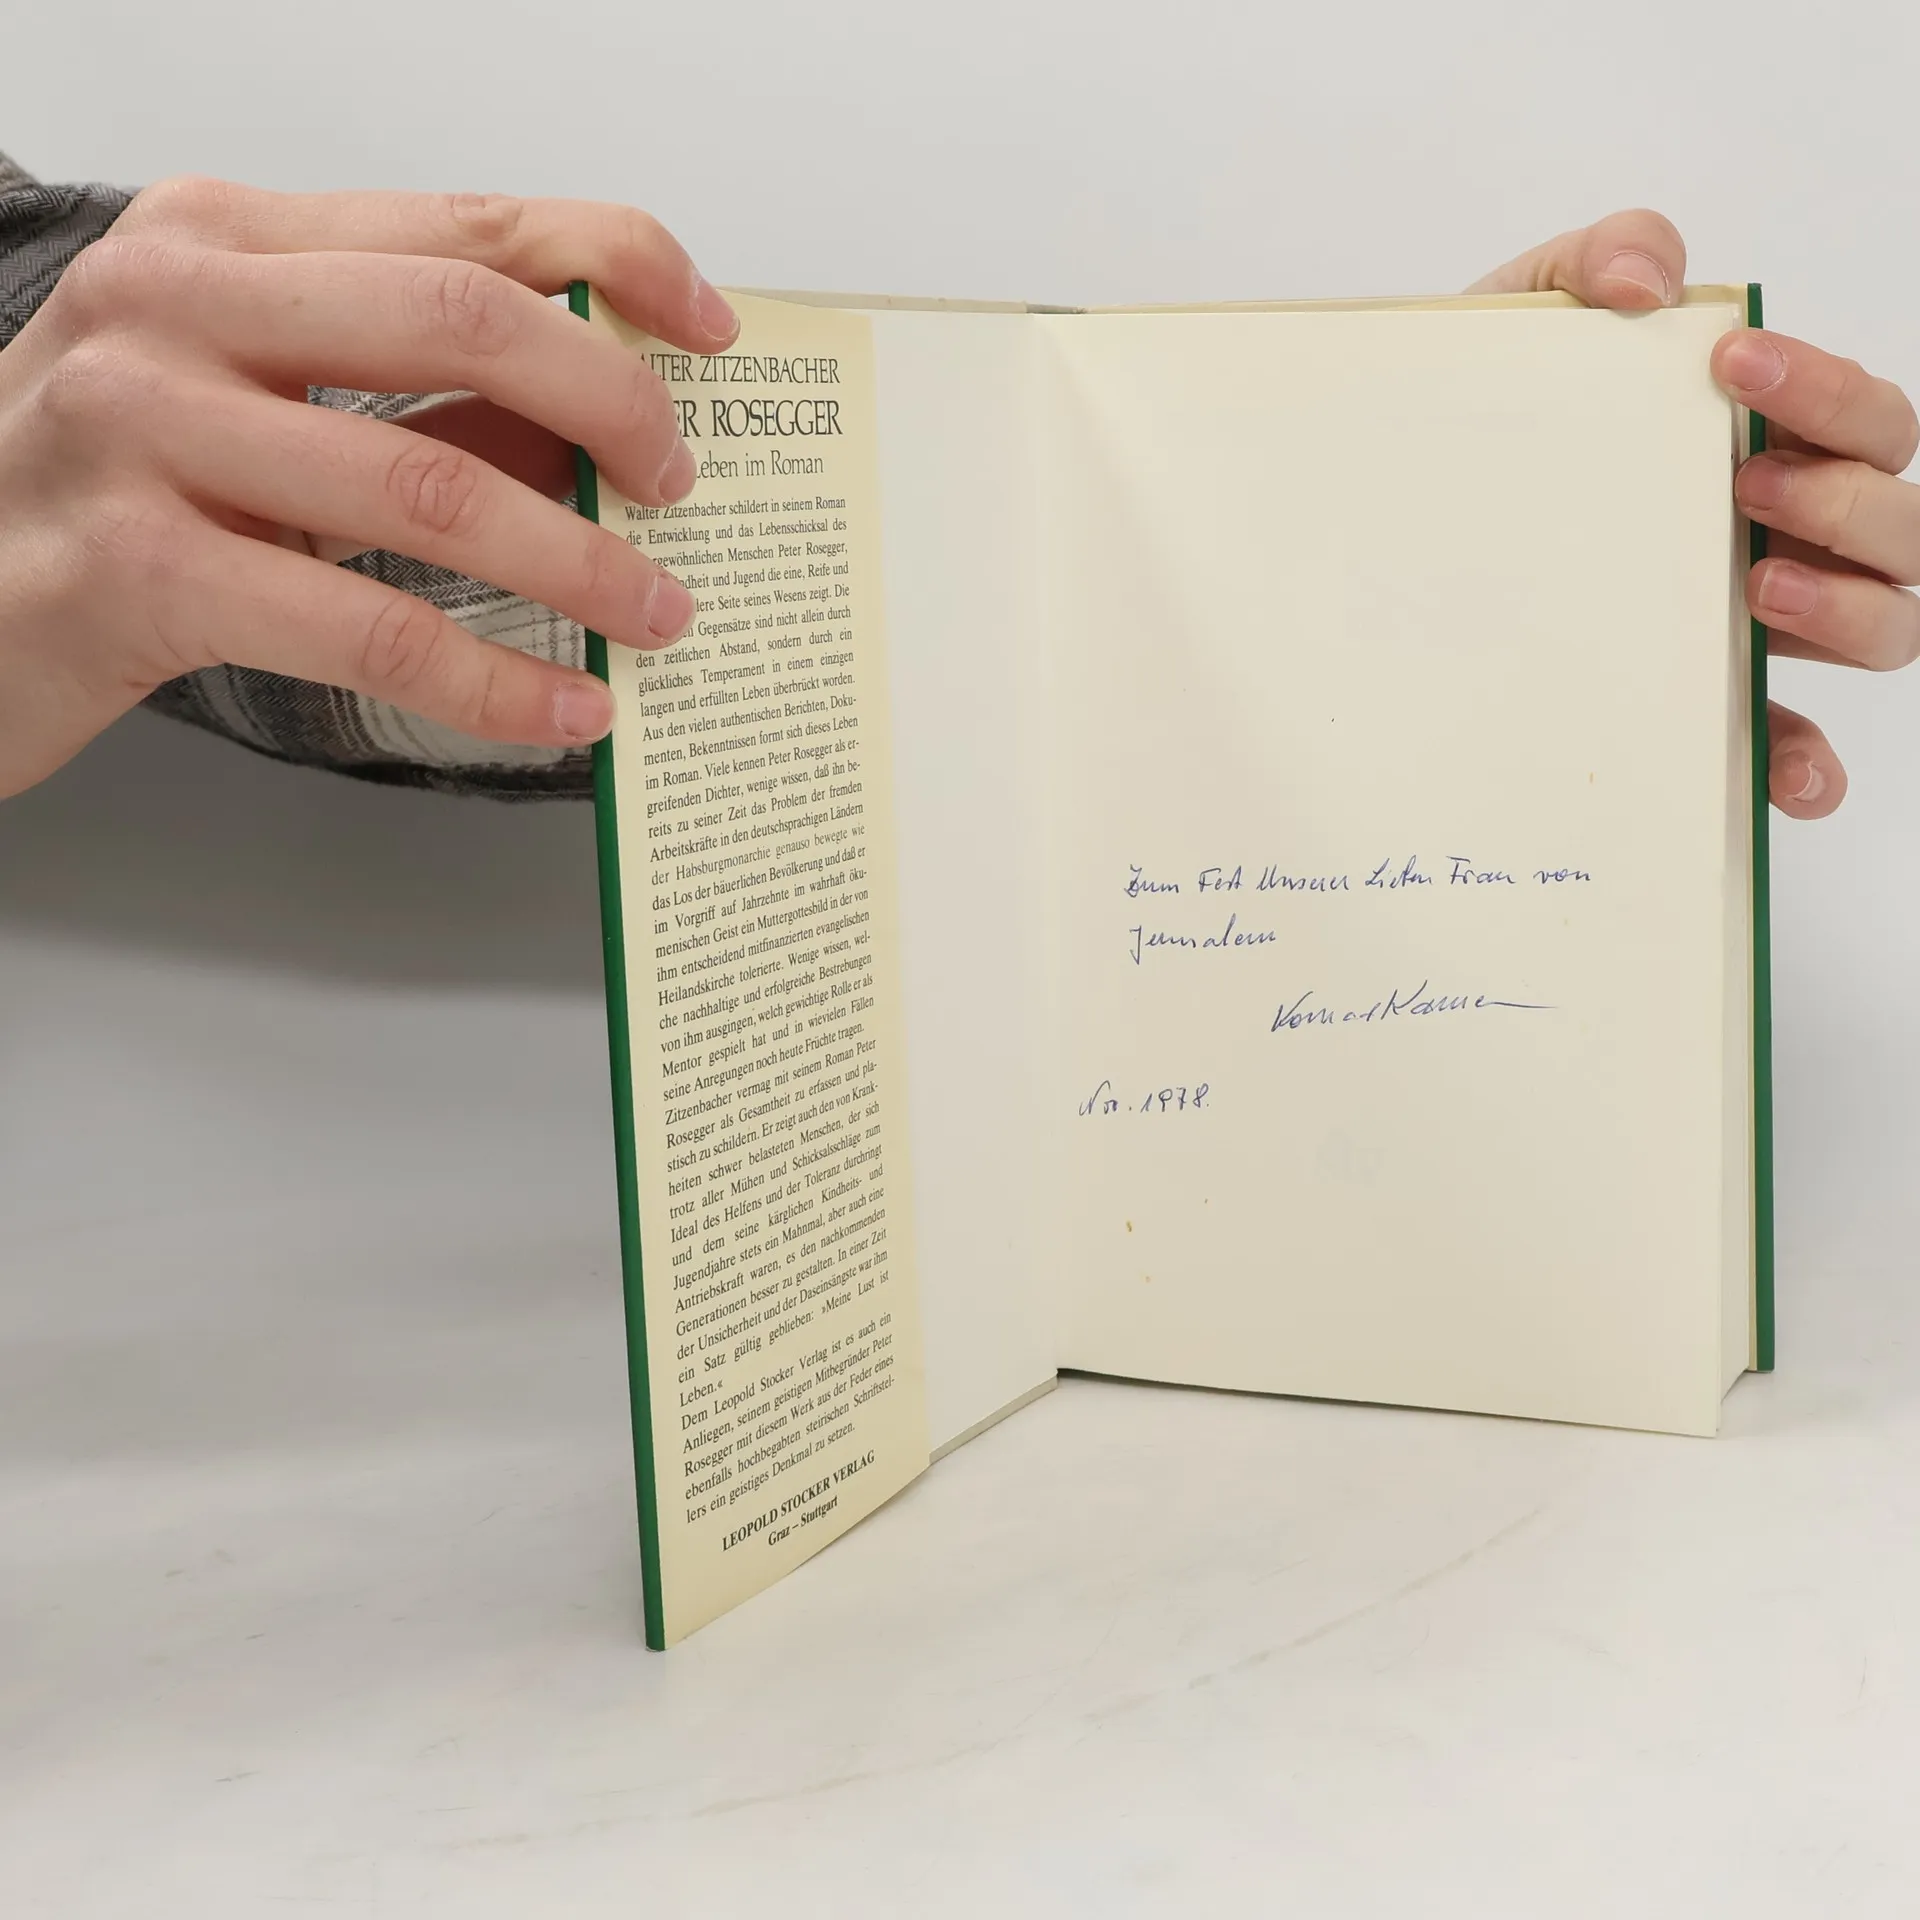 ALTER ZITZENBACHER
ER ROSEGGER
Leben im Roman
Walter Zitzenbacher schildert in seinem Roman
die Entwicklung und das Lebensschicksal des
rgewöhnlichen Menschen Peter Rosegger,
ndheit und Jugend die eine, Reife und
dere Seite seines Wesens zeigt. Die
n Gegensätze sind nicht allein durch
den zeitlichen Abstand, sondern durch ein
glückliches Temperament in einem einzigen
langen und erfüllten Leben überbrückt worden.
Aus den vielen authentischen Berichten, Doku-
menten, Bekenntnissen formt sich dieses Leben
im Roman. Viele kennen Peter Rosegger als er-
greifenden Dichter, wenige wissen, daß ihn be-
reits zu seiner Zeit das Problem der fremden
Arbeitskräfte in den deutschsprachigen Ländern
der Habsburgmonarchie genauso bewegte wie
das Los der bäuerlichen Bevölkerung und daß er
im Vorgriff auf Jahrzehnte im wahrhaft öku-
menischen Geist ein Muttergottesbild in der von
ihm entscheidend mitfinanzierten evangelischen
Heilandskirche tolerierte. Wenige wissen, wel-
che nachhaltige und erfolgreiche Bestrebungen
von ihm ausgingen, welch gewichtige Rolle er als
Mentor gespielt hat und in wievielen Fällen
seine Anregungen noch heute Früchte tragen.
Zitzenbacher vermag mit seinem Roman Peter
Rosegger als Gesamtheit zu erfassen und pla-
stisch zu schildern. Er zeigt auch den von Krank-
heiten schwer belasteten Menschen, der sich
trotz aller Mühen und Schicksalsschläge zum
Ideal des Helfens und der Toleranz durchringt
und dem seine kärglichen Kindheits- und
Jugendjahre stets ein Mahnmal, aber auch eine
Antriebskraft waren, es den nachkommenden
Generationen besser zu gestalten. In einer Zeit
der Unsicherheit und der Daseinsängste war ihm
ein Satz gültig geblieben: »Meine Lust ist
Leben.«
Dem Leopold Stocker Verlag ist es auch ein
Anliegen, seinem geistigen Mitbegründer Peter
Rosegger mit diesem Werk aus der Feder eines
ebenfalls hochbegabten steirischen Schriftstel-
lers ein geistiges Denkmal zu setzen.
LEOPOLD STOCKER VERLAG
Graz – Stuttgart
Zum Fest Unserer Lieben Frau von
Jerusalem
Nov. 1978.